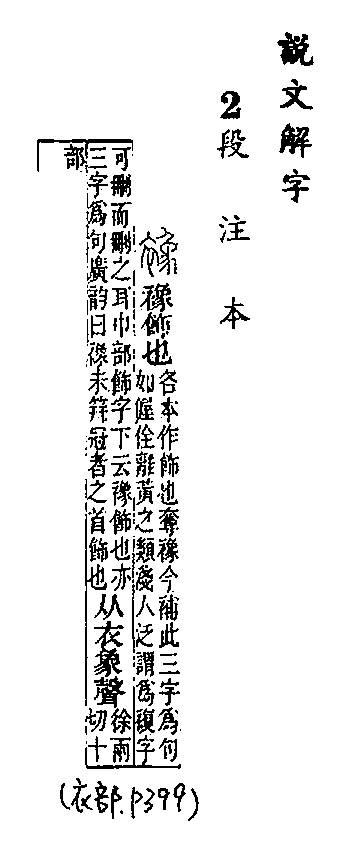 説文解字
2段注本
襐 襐飾也
各本作飾也奪襐今補此三字爲句
如偓佺離黃之類淺人泛謂爲複字
可刪而刪之耳巾部飾字下云襐飾也亦
三字爲句廣韵曰襐未筓冠者之首飾也
从衣象聲
徐兩
切十
部
(衣部.p399)